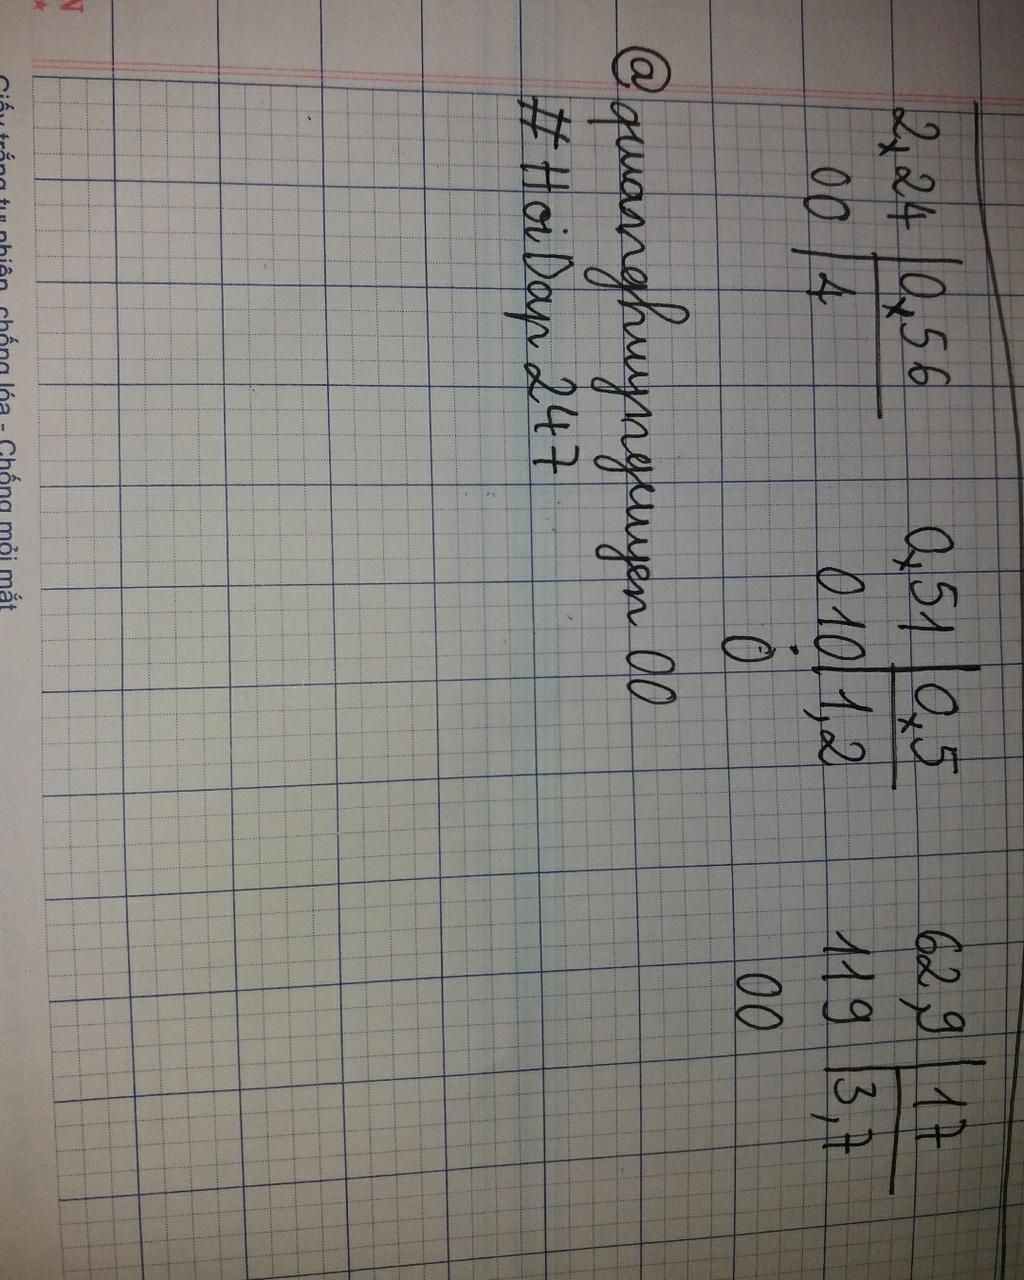 2,24 | 0,56 0,51 | 0,5 62,9 | 17
00 | 4 010 | 1,2 119 | 3,7
0 00
@quanghuynguyen00
#HoiDap247
Giấy trắng tự nhiên, chống lóa - Chống mỏi mắt